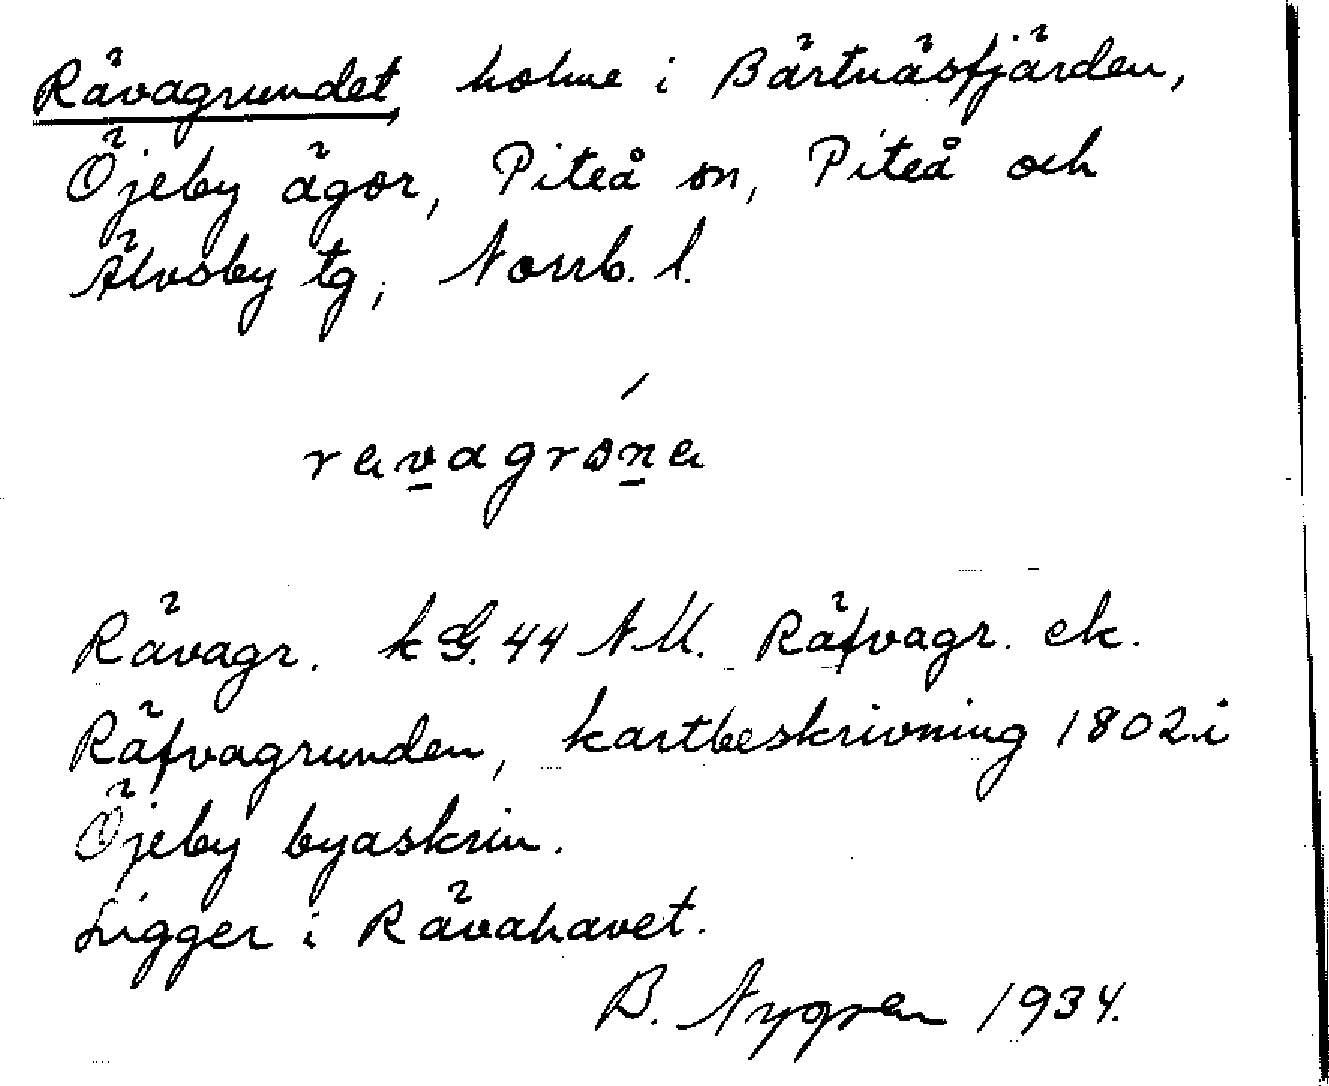 Rävagrundet, holme i Bärtnäsfjärden,
Öjeby ägor, Piteå sn, Piteå och
Älvsby tg, Norrb. l.
ravagrɷna
Rävagr. kG. 44 NU. Räfvagr. ek.
Räfvagrunden, kartbeskrivning 1802 i
Öjeby byaskrin.
Ligger i Rävahavet.
B. Nygren 1934.